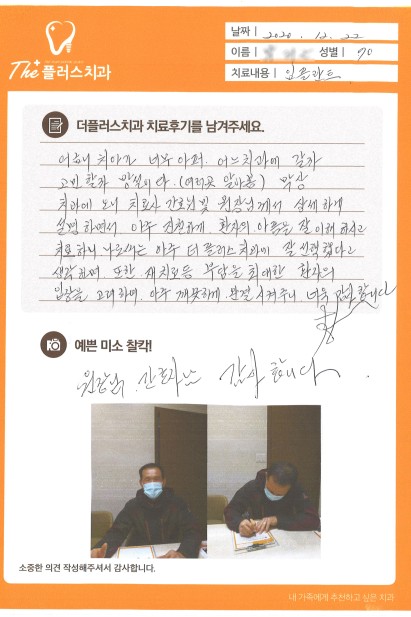 The+플러스치과
날짜 | 2020. 12. 22
이름 | 성별 | 70
치료내용 | 임플란트
더플러스치과 치료후기를 남겨주세요.
치아가 너무 아퍼. 어느치과에 갈까
고민할까 망설이다. (여러곳 알아봄) 막상
치과에 오니 치료사 간호님및 원장님께서 상세하게
설명하면서 아주 친절하게 환자의 아픔을 잘 이해하시고
치료하니 나로서는 아주 더플러스치과에 잘 선택했다고
생각하며 또한 재치료등 부담을 최대한 환자의
입장을 고려하며. 아주 깨끗하게 완결 시켜주니 너무 감사합니다
예쁜 미소 찰칵!
원장님. 간호사님 감사합니다.
소중한 의견 작성해주셔서 감사합니다.
내 가족에게 추천하고 싶은 치과